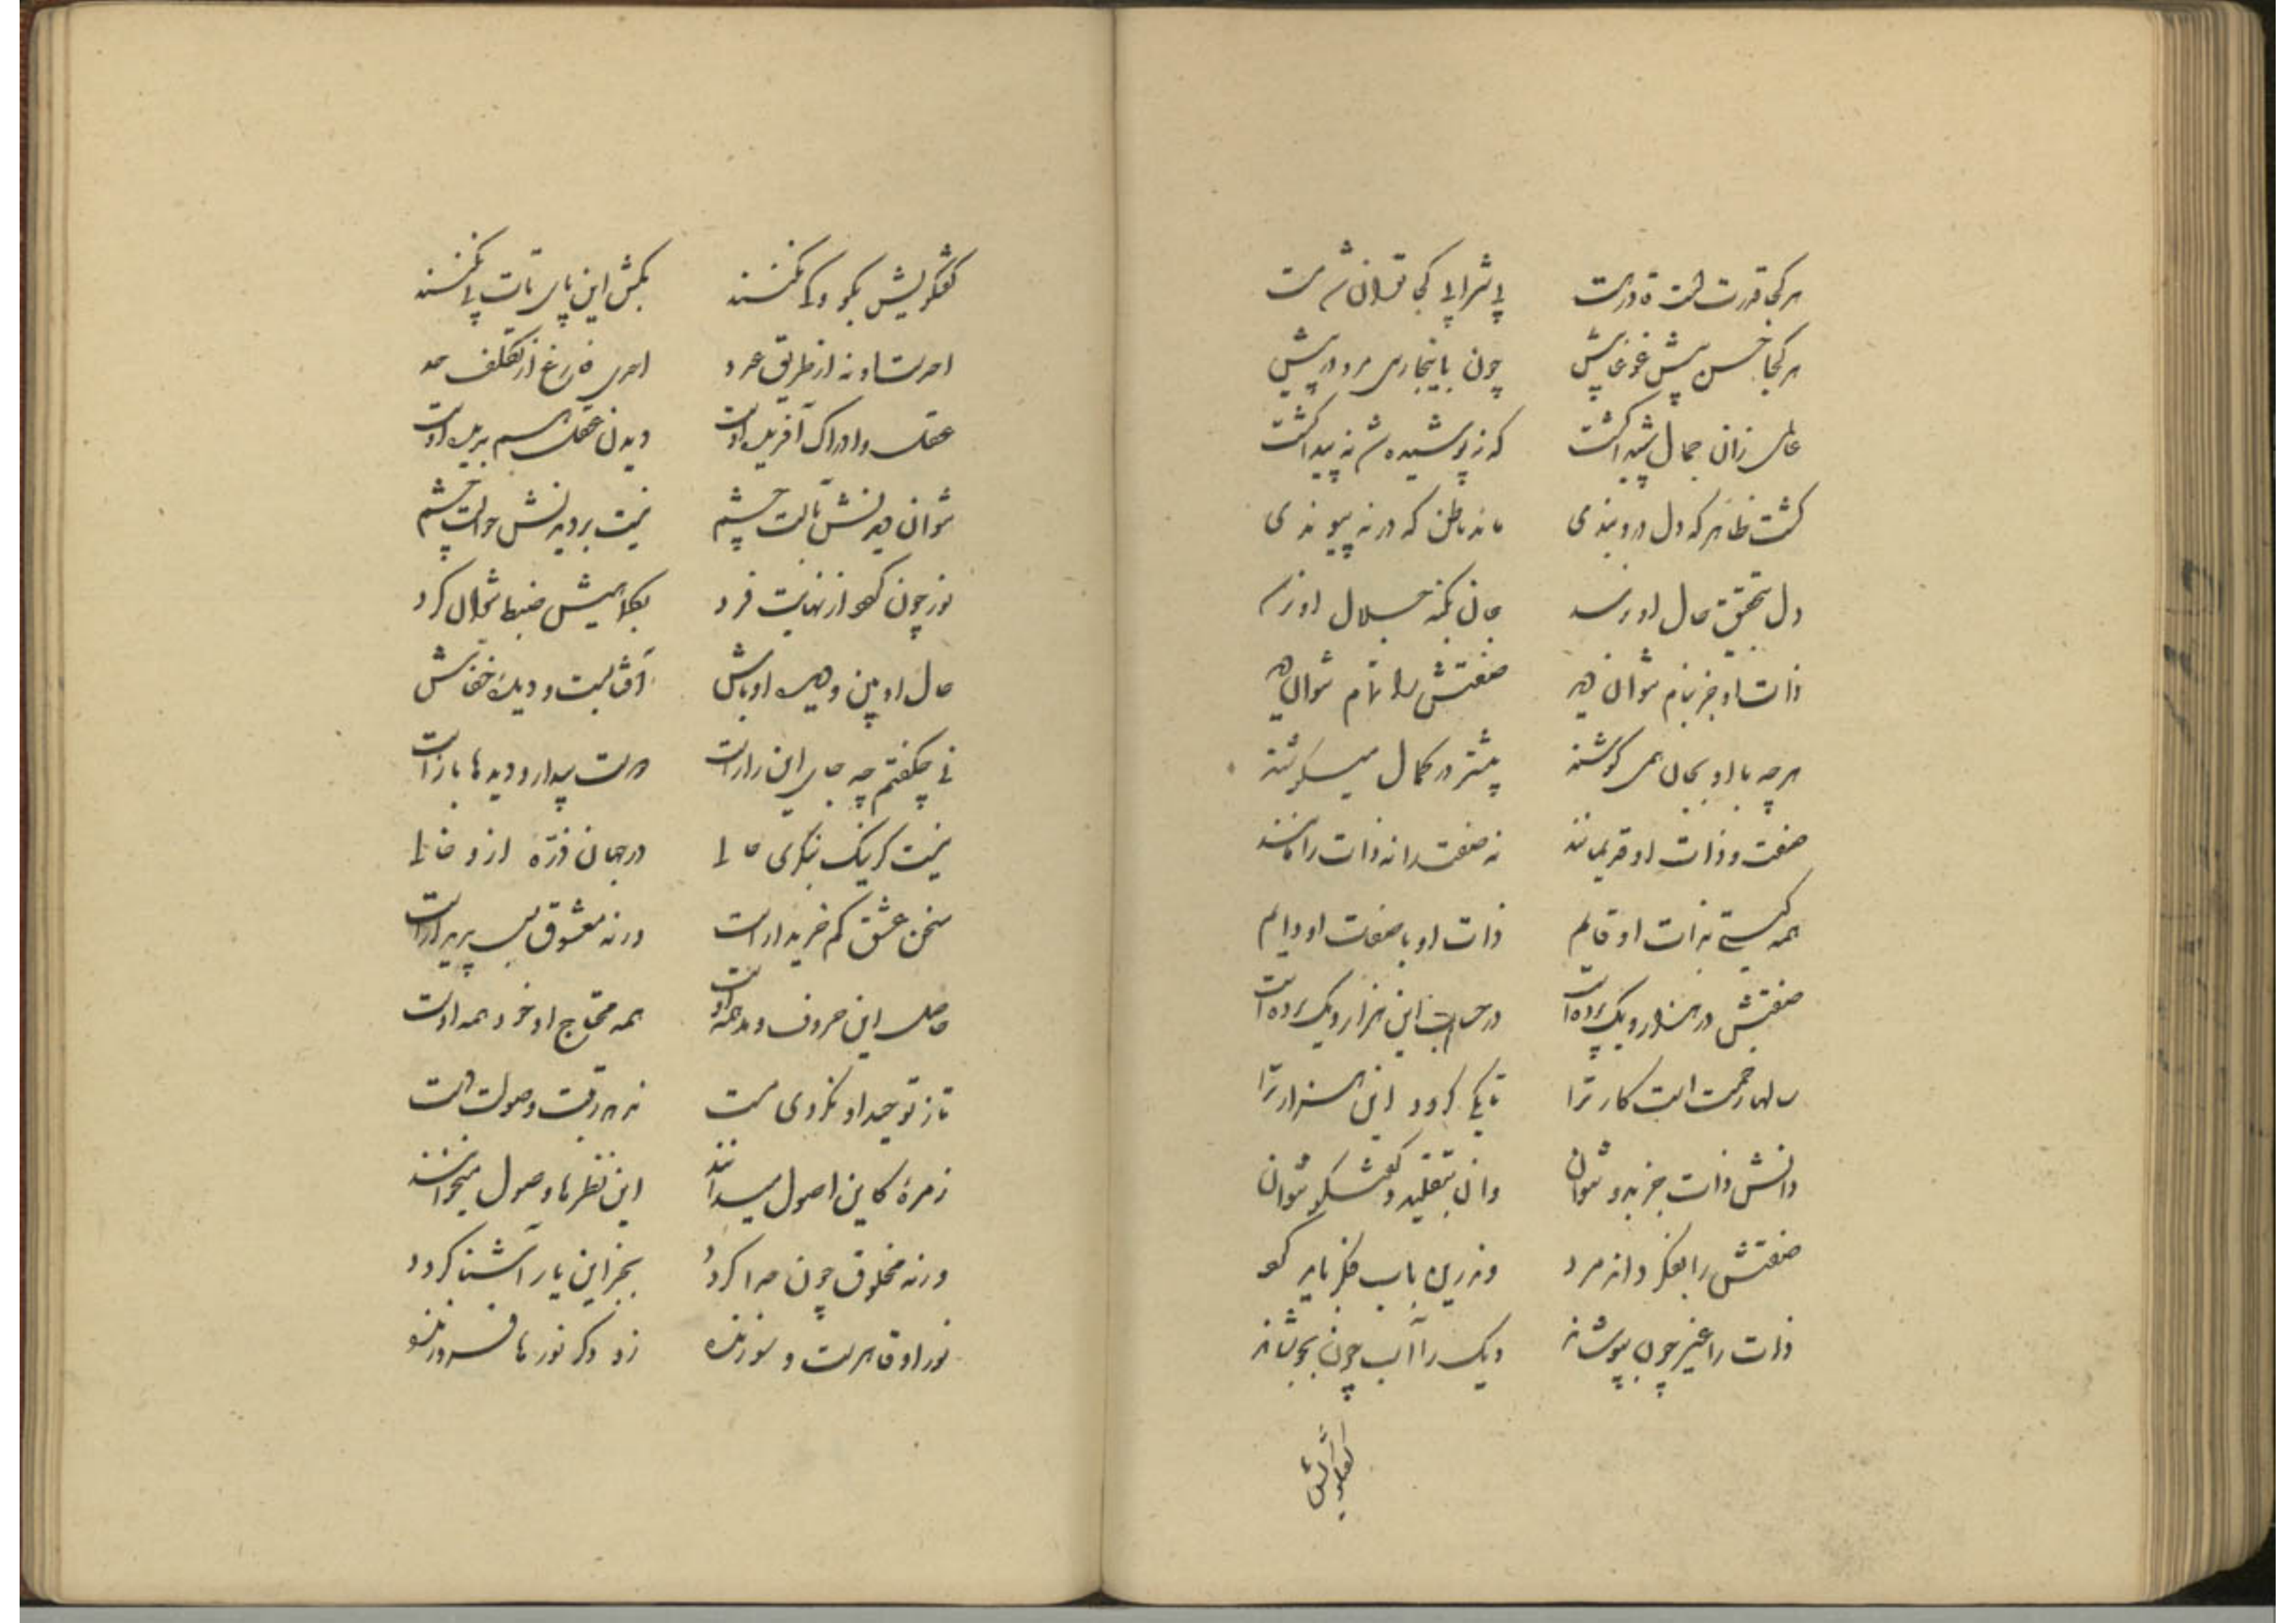 هر کجا قدرتست قادر هست پی شرابی کجا توان شد مست
هر کجا حسن بیش غوغا بیش چون باینجا رسی مرو در پیش
عالمی زان جمال شیدا گشت که نه پوشیده شد نه پیدا گشت
گشت ظاهر که دل درو بندی ماند باطن که در نپیوندی
دل بتحقیق حال او نرسد جان بکنه جلال او نرسد
ذات او جز بنام نتوان دید صفتش را تمام نتوان دید
هر چه با او بجان همی کوشند بیشتر در کمال میکوشند
صفت و ذات او قدیمانند نه صفت را نه ذات را مانند
همه گیتی بذات او قایم ذات او با صفات او دایم
صفتش در هزار و یک پرده است در حساب این هزار و یک نرده است
سالها زحمت است کار ترا تا یکی گردد این هزار ترا
دانش ذات جز بدو نتوان وان بتقلید و گفتگو نتوان
صفتش را بفکر داند مرد وندرین باب فکر باید کرد
ذات را غیر چون بپوشاند دیگ را آب چون بجوشاند
گفتگویش
گفتگویش بگو ولی مکنسند بکش این پای تات پی نکنند
احدست او نه از طریق عدد احدی فارغ از تکلف حد
عقل و ادراک آفریده اوست دیدن عقل هم بدیده اوست
نتوان دیدنش بآلت چشم نیست بر دیدنش حوالت چشم
نور چون گوهر از نهایت فرد بکلاهیش ضبط نتوان کرد
حال او بین و هر سه او باش آفتابست و دیده خفاش
نی چگفتم چه جای این رازست دوست بیدار و دیدها بازست
نیست گر نیک بنگری حالی در جهان ذره ازو خالی
سخن عشق کم خریدارست ورنه معشوق بس پدیدارست
حاصل این حروف و مد همه اوست همه محتاج او خود همه اوست
تا ز توحید او نگردی مست ندهد رتبت وصولت دست
زمره کاین اصول میدانند این نظر را وصول میخوانند
ورنه مخلوق چون خدا گردد بجز این یار آشنا گردد
نور او قاهرست و سوزنده زو دگر نورها فروزنده